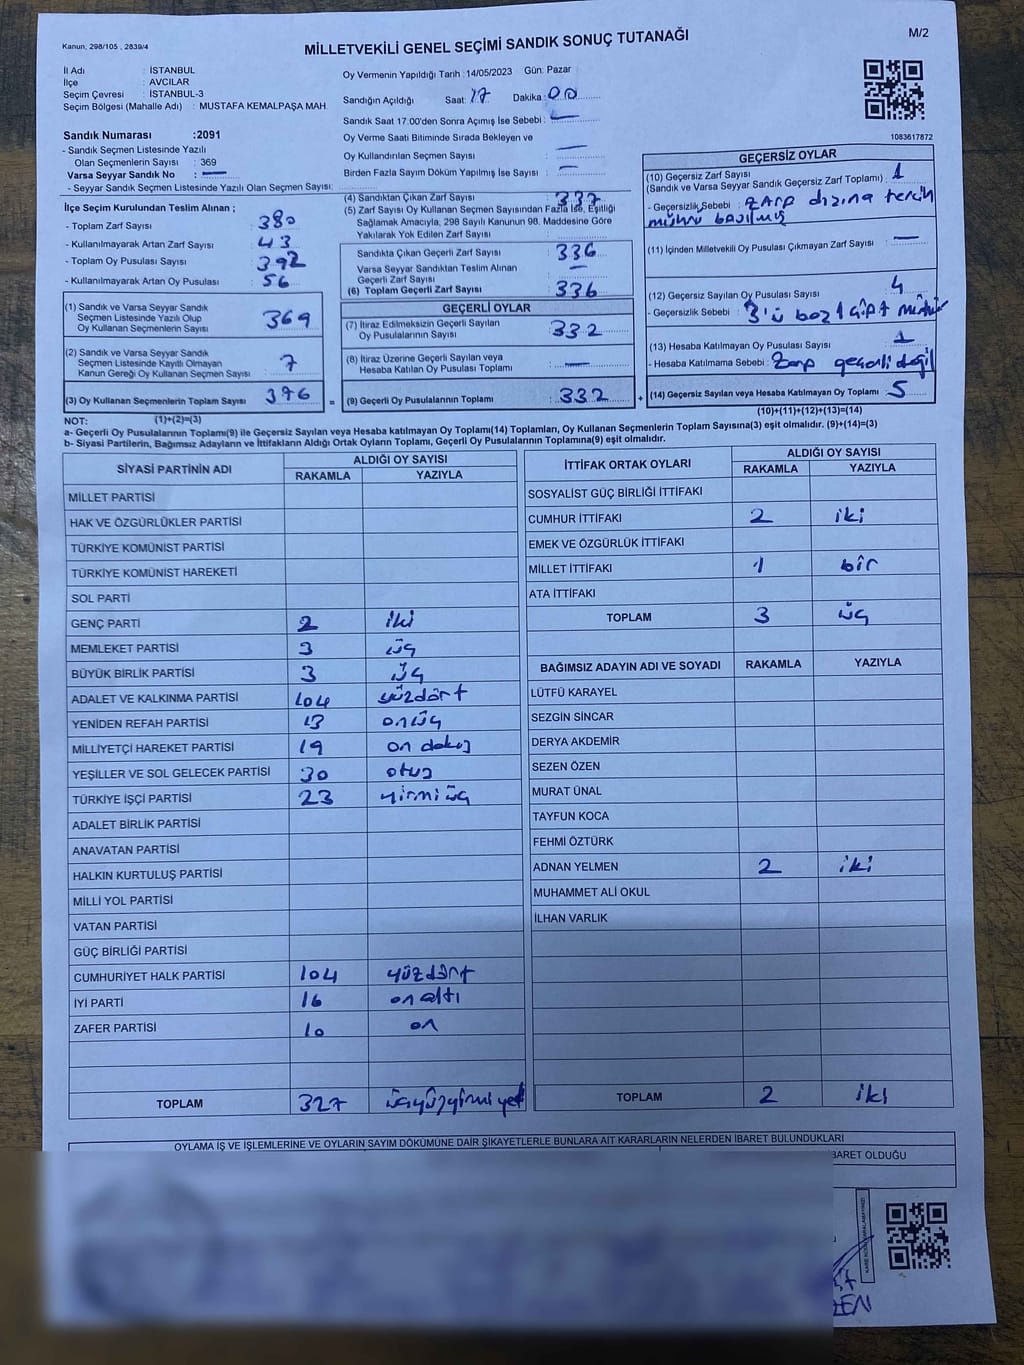 Kanun, 298/105 , 2839/4
MİLLETVEKİLİ GENEL SEÇİMİ SANDIK SONUÇ TUTANAĞI
M/2
İl Adı : İSTANBUL
İlçe : AVCILAR
Seçim Çevresi : İSTANBUL-3
Seçim Bölgesi (Mahalle Adı) : MUSTAFA KEMALPAŞA MAH.
Oy Vermenin Yapıldığı Tarih :14/05/2023 Gün: Pazar
Sandığın Açıldığı Saat: 17 Dakika: 00
Sandık Saat 17.00'den Sonra Açımış İse Sebebi : —
Oy Verme Saati Bitiminde Sırada Bekleyen ve
Oy Kullandırılan Seçmen Sayısı : —
Birden Fazla Sayım Döküm Yapılmış İse Sayısı : —
1083617872
Sandık Numarası :2091
- Sandık Seçmen Listesinde Yazılı
Olan Seçmenlerin Sayısı : 369
Varsa Seyyar Sandık No : —
- Seyyar Sandık Seçmen Listesinde Yazılı Olan Seçmen Sayısı:
İlçe Seçim Kurulundan Teslim Alınan ;
- Toplam Zarf Sayısı : 380
- Kullanılmayarak Artan Zarf Sayısı : 43
- Toplam Oy Pusulası Sayısı : 392
- Kullanılmayarak Artan Oy Pusulası : 56
(1) Sandık ve Varsa Seyyar Sandık
Seçmen Listesinde Yazılı Olup
Oy Kullanan Seçmenlerin Sayısı : 369
(2) Sandık ve Varsa Seyyar Sandık
Seçmen Listesinde Kayıtlı Olmayan
Kanun Gereği Oy Kullanan Seçmen Sayısı : 7
(3) Oy Kullanan Seçmenlerin Toplam Sayısı : 376
(4) Sandıktan Çıkan Zarf Sayısı : 337
(5) Zarf Sayısı Oy Kullanan Seçmen Sayısından Fazla İse, Eşitliği
Sağlamak Amacıyla, 298 Sayılı Kanunun 98. Maddesine Göre
Yakılarak Yok Edilen Zarf Sayısı :
Sandıkta Çıkan Geçerli Zarf Sayısı : 336
Varsa Seyyar Sandıktan Teslim Alınan
Geçerli Zarf Sayısı : —
(6) Toplam Geçerli Zarf Sayısı : 336
GEÇERLİ OYLAR
(7) İtiraz Edilmeksizin Geçerli Sayılan
Oy Pusulalarının Sayısı : 332
(8) İtiraz Üzerine Geçerli Sayılan veya
Hesaba Katılan Oy Pusulası Toplamı : —
= (9) Geçerli Oy Pusulalarının Toplamı : 332 +
GEÇERSİZ OYLAR
(10) Geçersiz Zarf Sayısı : 1
(Sandık ve Varsa Seyyar Sandık Geçersiz Zarf Toplamı)
- Geçersizlik Sebebi : zarp dızına tercih
mührü basılmış
(11) İçinden Milletvekili Oy Pusulası Çıkmayan Zarf Sayısı : —
(12) Geçersiz Sayılan Oy Pusulası Sayısı : 4
- Geçersizlik Sebebi : 3'ü boz 1 çift mühür
(13) Hesaba Katılmayan Oy Pusulası Sayısı : 1
- Hesaba Katılmama Sebebi : Zarp geçerli değil
(14) Geçersiz Sayılan veya Hesaba Katılmayan Oy Toplamı : 5
NOT: (1)+(2)=(3)
(10)+(11)+(12)+(13)=(14)
a- Geçerli Oy Pusulalarının Toplamı(9) ile Geçersiz Sayılan veya Hesaba katılmayan Oy Toplamı(14) Toplamları, Oy Kullanan Seçmenlerin Toplam Sayısına(3) eşit olmalıdır. (9)+(14)=(3)
b- Siyasi Partilerin, Bağımsız Adayların ve İttifakların Aldığı Ortak Oyların Toplamı, Geçerli Oy Pusulalarının Toplamına(9) eşit olmalıdır.
SİYASİ PARTİNİN ADI ALDIĞI OY SAYISI
RAKAMLA YAZIYLA
MİLLET PARTİSİ
HAK VE ÖZGÜRLÜKLER PARTİSİ
TÜRKİYE KOMÜNİST PARTİSİ
TÜRKİYE KOMÜNİST HAREKETİ
SOL PARTİ
GENÇ PARTİ 2 iki
MEMLEKET PARTİSİ 3 üç
BÜYÜK BİRLİK PARTİSİ 3 üç
ADALET VE KALKINMA PARTİSİ 104 yüzdört
YENİDEN REFAH PARTİSİ 13 onüç
MİLLİYETÇİ HAREKET PARTİSİ 19 on dokuz
YEŞİLLER VE SOL GELECEK PARTİSİ 30 otuz
TÜRKİYE İŞÇİ PARTİSİ 23 yirmi üç
ADALET BİRLİK PARTİSİ
ANAVATAN PARTİSİ
HALKIN KURTULUŞ PARTİSİ
MİLLİ YOL PARTİSİ
VATAN PARTİSİ
GÜÇ BİRLİĞİ PARTİSİ
CUMHURİYET HALK PARTİSİ 104 yüzdört
İYİ PARTİ 16 on altı
ZAFER PARTİSİ 10 on
TOPLAM 327 üçyüzyirmi yedi
İTTİFAK ORTAK OYLARI ALDIĞI OY SAYISI
RAKAMLA YAZIYLA
SOSYALİST GÜÇ BİRLİĞİ İTTİFAKI
CUMHUR İTTİFAKI 2 iki
EMEK VE ÖZGÜRLÜK İTTİFAKI
MİLLET İTTİFAKI 1 bir
ATA İTTİFAKI
TOPLAM 3 üç
BAĞIMSIZ ADAYIN ADI VE SOYADI RAKAMLA YAZIYLA
LÜTFÜ KARAYEL
SEZGİN SİNCAR
DERYA AKDEMİR
SEZEN ÖZEN
MURAT ÜNAL
TAYFUN KOCA
FEHMİ ÖZTÜRK
ADNAN YELMEN 2 iki
MUHAMMET ALİ OKUL
İLHAN VARLIK
TOPLAM 2 iki
OYLAMA İŞ VE İŞLEMLERİNE VE OYLARIN SAYIM DÖKÜMÜNE DAİR ŞİKAYETLERLE BUNLARA AİT KARARLARIN NELERDEN İBARET BULUNDUKLARI
BARET OLDUĞU